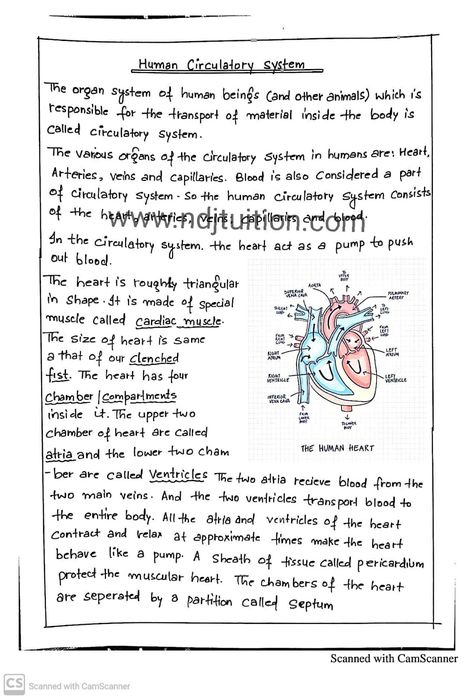 Human Circulatory System
The organ system of human beings (and other animals) which is
responsible for the transport of material inside the body is
called circulatory system.
The various organs of the circulatory system in humans are: Heart,
Arteries, veins and capillaries. Blood is also considered a part
of circulatory system. So the human circulatory system consists
of the heart, arteries, veins, capillaries and blood.
www.ndjtuition.com
In the circulatory system. the heart act as a pump to push
out blood.
The heart is roughly triangular
in shape. It is made of special
muscle called cardiac muscle.
The size of heart is same
a that of our clenched
fist. The heart has four
chamber/compartments
inside it. The upper two
chamber of heart are called
atria and the lower two cham
TO UPPER BODY
SUPERIOR VENA CAVA
AORTA
PULMONARY ARTERY
TO RIGHT LUNG
TO LEFT LUNG
FROM RIGHT LUNG
FROM LEFT LUNG
RIGHT ATRIUM
LEFT ATRIUM
RIGHT VENTRICLE
LEFT VENTRICLE
INFERIOR VENA CAVA
FROM LOWER BODY
TO LOWER BODY
THE HUMAN HEART
-ber are called Ventricles The two atria recieve blood from the
two main veins. And the two ventricles transport blood to
the entire body. All the atria and ventricles of the heart
contract and relax at approximate times make the heart
behave like a pump. A sheath of tissue called pericardium
protect the muscular heart. The chambers of the heart
are seperated by a partition called septum
Scanned with CamScanner
CS Scanned with CamScanner